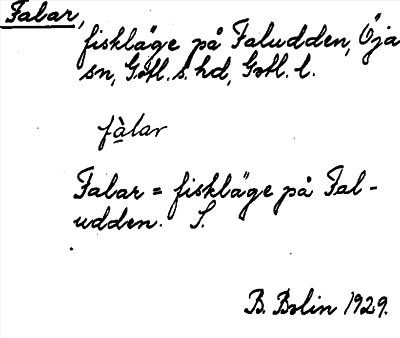 Falar,
fiskläge på Faludden, Öja
sn, Gotl. s. hd, Gotl. l.
fàlar
Falar = fiskläge på Fal-
udden. S.
B. Bolin 1929.